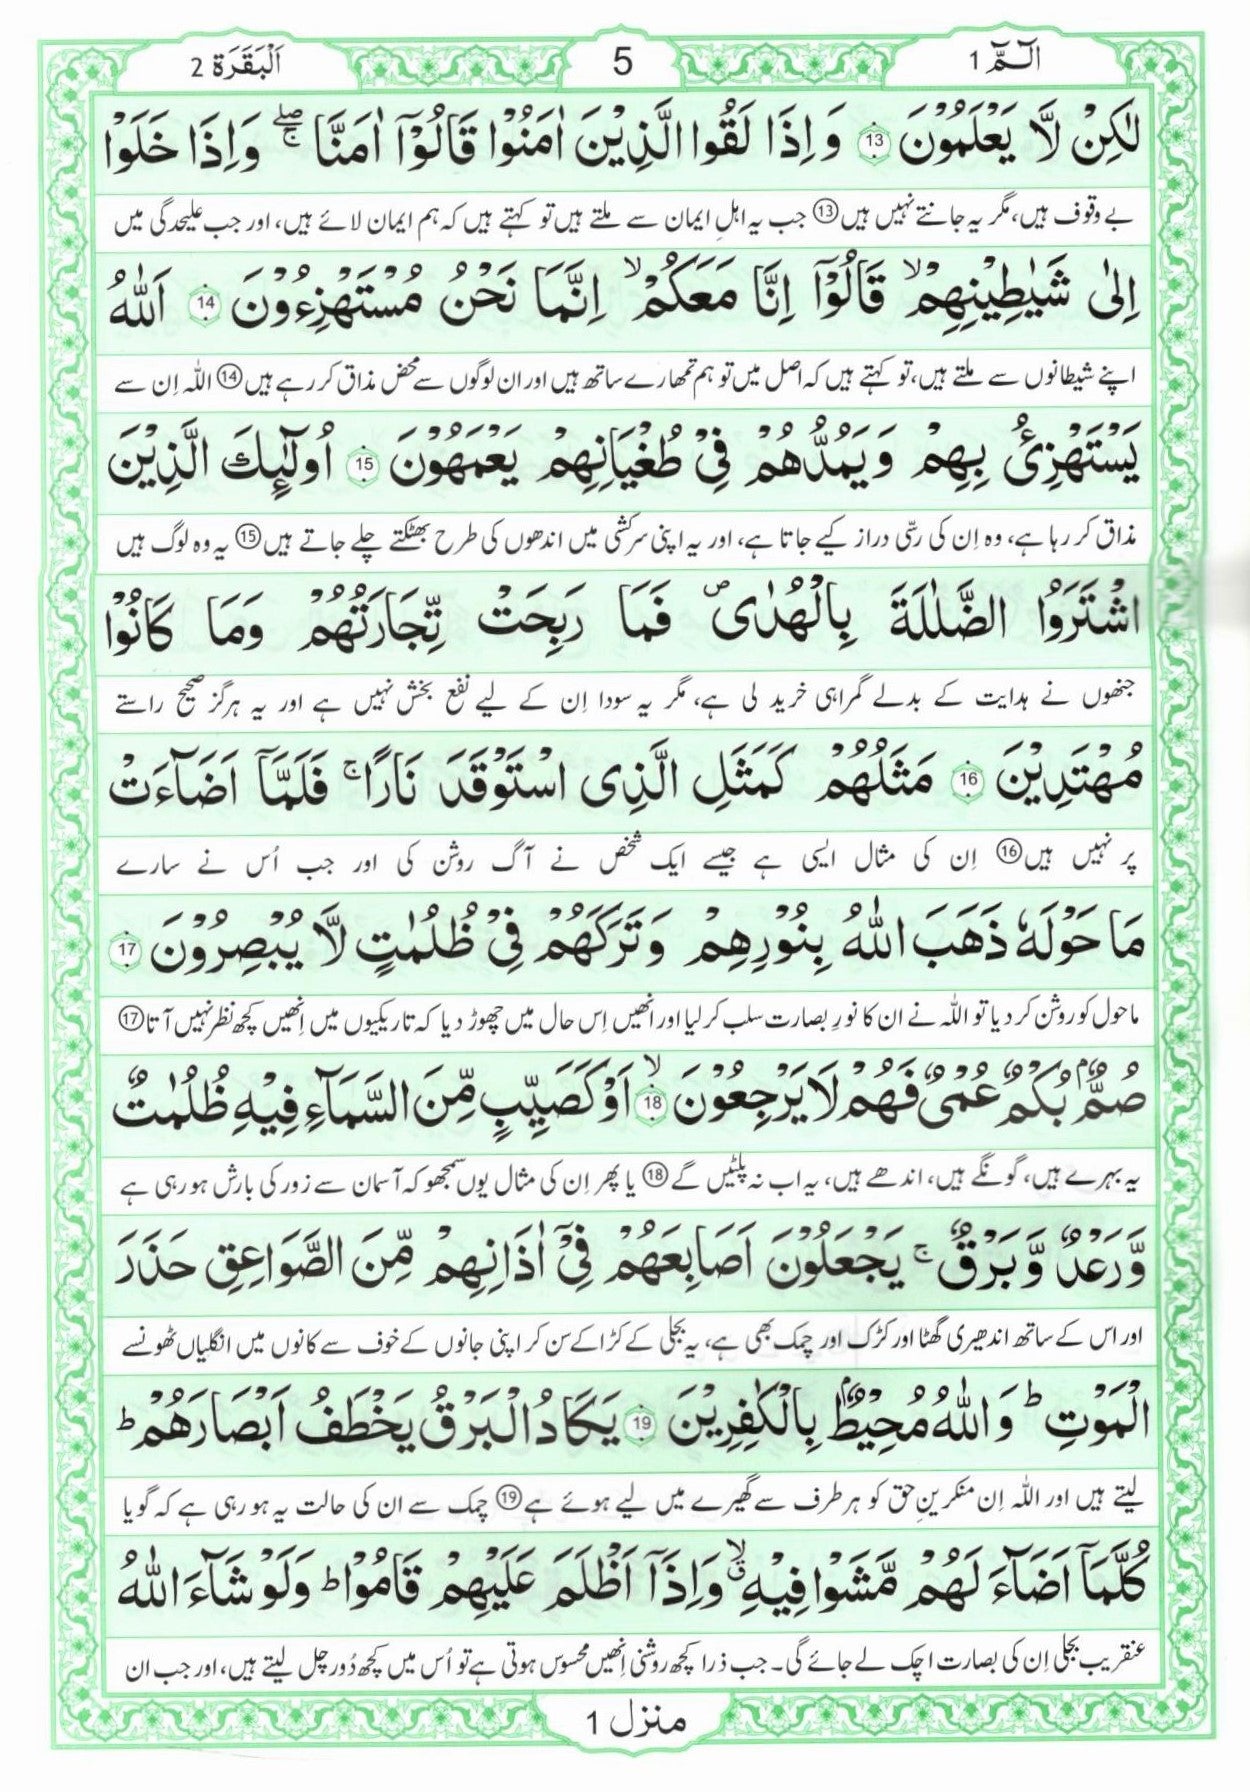 الٓمّٓ 1
5
اَلْبَقَرَة 2
لٰكِنْ لَّا يَعْلَمُوْنَ 13 وَ اِذَا لَقُوا الَّذِيْنَ اٰمَنُوْا قَالُوْٓا اٰمَنَّا ۚۖ وَاِذَا خَلَوْا
بے وقوف ہیں، مگر یہ جانتے نہیں ہیں⑬ جب یہ اہلِ ایمان سے ملتے ہیں تو کہتے ہیں کہ ہم ایمان لائے ہیں، اور جب علیحدگی میں
اِلٰى شَيٰطِيْنِهِمْ ۙ قَالُوْٓا اِنَّا مَعَكُمْ ۙ اِنَّمَا نَحْنُ مُسْتَهْزِءُوْنَ 14 اَللّٰهُ
اپنے شیطانوں سے ملتے ہیں، تو کہتے ہیں کہ اصل میں تو ہم تمھارے ساتھ ہیں اور ان لوگوں سے محض مذاق کر رہے ہیں⑭ اللہ اِن سے
يَسْتَهْزِئُ بِهِمْ وَيَمُدُّهُمْ فِيْ طُغْيَانِهِمْ يَعْمَهُوْنَ 15 اُولٰٓئِكَ الَّذِيْنَ
مذاق کر رہا ہے، وہ اِن کی رسّی دراز کیے جاتا ہے، اور یہ اپنی سرکشی میں اندھوں کی طرح بھٹکتے چلے جاتے ہیں⑮ یہ وہ لوگ ہیں
اشْتَرَوُا الضَّلٰلَةَ بِالْهُدٰى ۠ فَمَا رَبِحَتْ تِّجَارَتُهُمْ وَمَا كَانُوْا
جنھوں نے ہدایت کے بدلے گمراہی خرید لی ہے، مگر یہ سودا اِن کے لیے نفع بخش نہیں ہے اور یہ ہرگز صحیح راستے
مُهْتَدِيْنَ 16 مَثَلُهُمْ كَمَثَلِ الَّذِى اسْتَوْقَدَ نَارًا ۚ فَلَمَّآ اَضَآءَتْ
پر نہیں ہیں⑯ اِن کی مثال ایسی ہے جیسے ایک شخص نے آگ روشن کی اور جب اُس نے سارے
مَا حَوْلَهٗ ذَهَبَ اللّٰهُ بِنُوْرِهِمْ وَتَرَكَهُمْ فِيْ ظُلُمٰتٍ لَّا يُبْصِرُوْنَ 17
ماحول کو روشن کر دیا تو اللہ نے ان کا نورِ بصارت سلب کر لیا اور انھیں اِس حال میں چھوڑ دیا کہ تاریکیوں میں اِنھیں کچھ نظر نہیں آتا⑰
صُمٌّۢ بُكْمٌ عُمْىٌ فَهُمْ لَا يَرْجِعُوْنَ 18 ۙ اَوْ كَصَيِّبٍ مِّنَ السَّمَآءِ فِيْهِ ظُلُمٰتٌ
یہ بہرے ہیں، گونگے ہیں، اندھے ہیں، یہ اب نہ پلٹیں گے⑱ یا پھر اِن کی مثال یوں سمجھو کہ آسمان سے زور کی بارش ہو رہی ہے
وَّرَعْدٌ وَّبَرْقٌ ۚ يَجْعَلُوْنَ اَصَابِعَهُمْ فِيْٓ اٰذَانِهِمْ مِّنَ الصَّوَاعِقِ حَذَرَ
اور اس کے ساتھ اندھیری گھٹا اور کڑک اور چمک بھی ہے، یہ بجلی کے کڑاکے سن کر اپنی جانوں کے خوف سے کانوں میں انگلیاں ٹھونسے
الْمَوْتِ ؕ وَاللّٰهُ مُحِيْطٌۢ بِالْكٰفِرِيْنَ 19 يَكَادُ الْبَرْقُ يَخْطَفُ اَبْصَارَهُمْ ؕ
لیتے ہیں اور اللہ اِن منکرینِ حق کو ہر طرف سے گھیرے میں لیے ہوئے ہے⑲ چمک سے ان کی حالت یہ ہو رہی ہے کہ گویا
كُلَّمَآ اَضَآءَ لَهُمْ مَّشَوْا فِيْهِ ۙۗ وَاِذَآ اَظْلَمَ عَلَيْهِمْ قَامُوْا ؕ وَلَوْ شَآءَ اللّٰهُ
عنقریب بجلی اِن کی بصارت اچک لے جائے گی۔ جب ذرا کچھ روشنی اِنھیں محسوس ہوتی ہے تو اُس میں کچھ دُور چل لیتے ہیں، اور جب ان
منزل 1